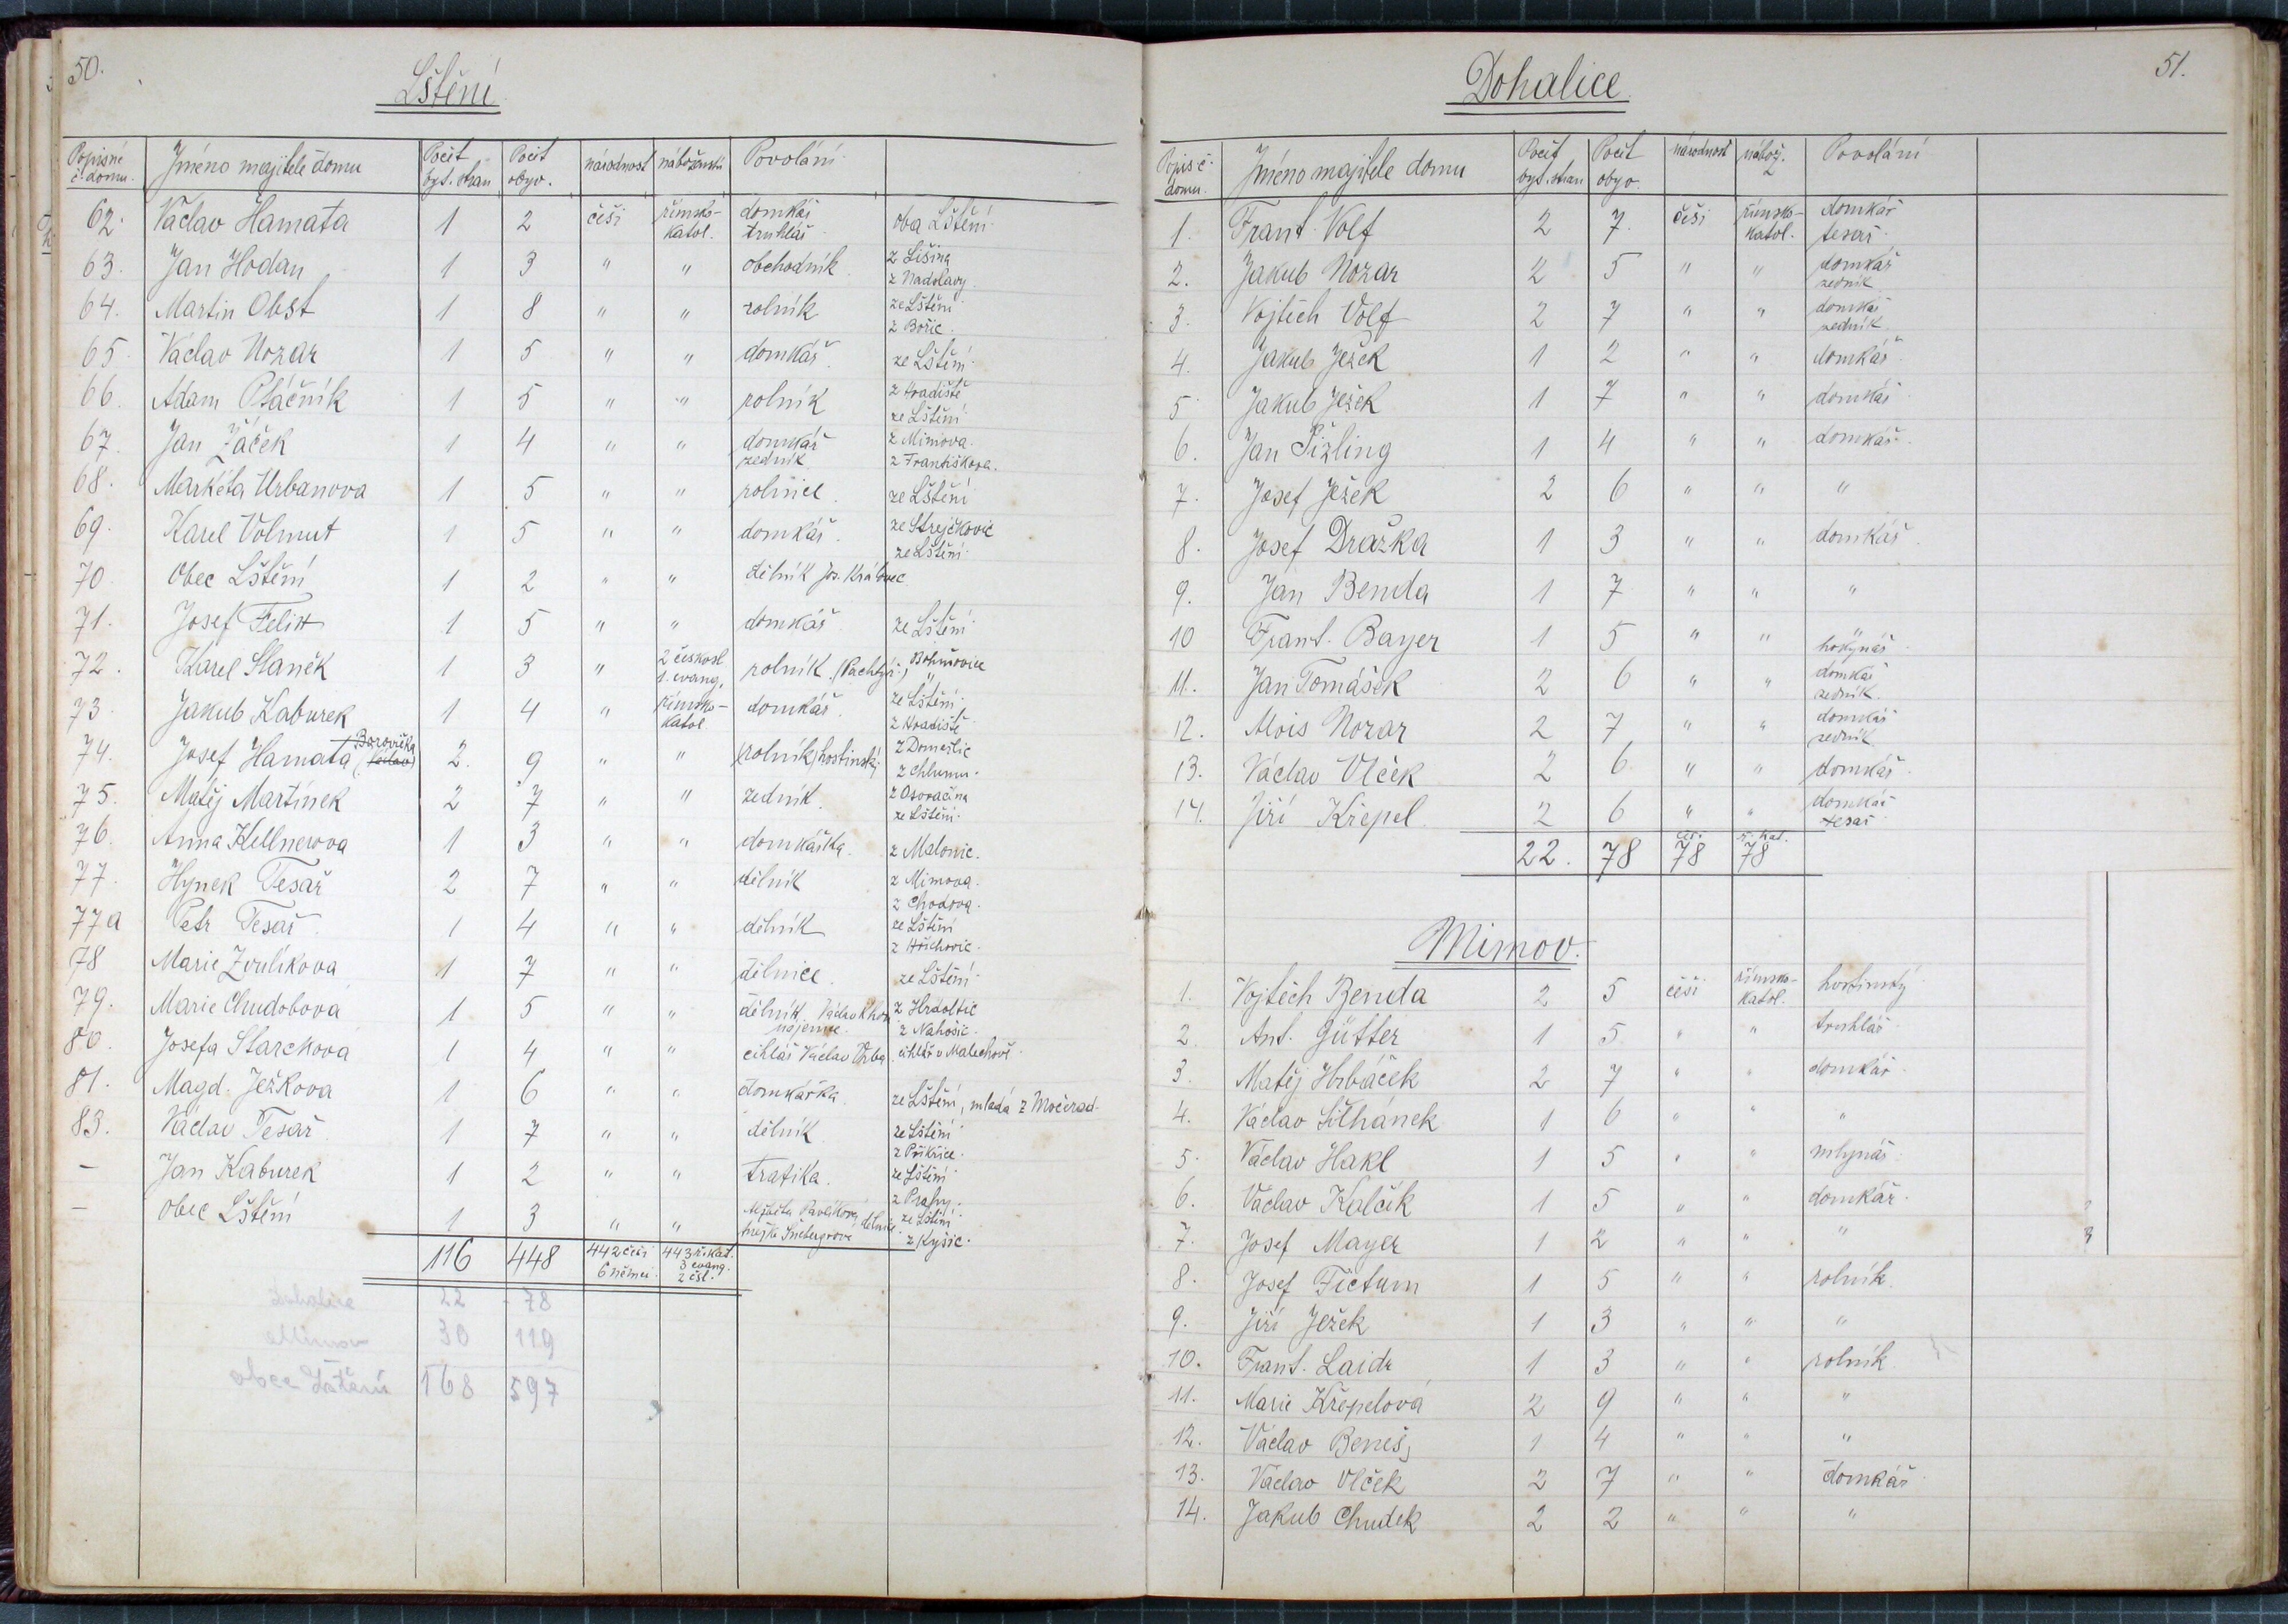 50.
Lštění
Popisné č. domu. Jméno majitele domu Počet byt. stran Počet obyv. národnost náboženství Povolání
62. Václav Hamata 1 2 češi římsko-katol. domkář truhlář oba Lštění
63. Jan Hodan 1 3 " " obchodník z Lišina z Nadslavy
64. Martin Obst 1 8 " " rolník ze Lštění z Bořic.
65. Václav Nozar 1 5 " " domkář. ze Lštění
66. Adam Ptáčník 1 5 " " rolník z Hradiště ze Lštění
67. Jan Žáček 1 4 " " domkář zedník z Mimova. z Františkova.
68. Markéta Urbanova 1 5 " " rolnice. ze Lštění
69. Karel Volmut 1 5 " " domkář. ze Strejčkovic ze Lštění
70. Obec Lštění 1 2 " " dělník Jos. Královec
71. Josef Felix 1 5 " " domkář. ze Lštění
72. Karel Slaněk 1 3 " 2 českosl. 1. evang. rolník. (Pachtýř.)
73. Jakub Kaburek 1 4 " římsko-katol. domkář. ze Lštění z Hradiště
74. Josef Hamata Borovička (Václav) 2. 9 " " (rolník) hostinský z Domažlic z Chlumu.
75. Matěj Martínek 2 7 " " zedník. z Osvračína ze Lštění.
76. Anna Kellnerova 1 3 " " domkářka. z Malonic.
77. Hynek Tesař 2 7 " " dělník z Mimova. z Chodova.
77a Petr Tesař 1 4 " " dělník ze Lštění
78 Marie Zvulíkova 1 7 " " dělnice. ze Lštění
79. Marie Chudobová 1 5 " " dělník. Václav nájemce. z Hradoltic z Nahošic.
80. Josefa Starckova 1 4 " " cihlář Václav Vrba. cihlář v Malechově.
81. Magd. Ježkova 1 6 " " domkářka. ze Lštění, mladá z Močerad-
83. Václav Tesař 1 7 " " dělník. ze Lštění
– Jan Kaburek 1 2 " " trafika. ze Lštění z Prahy.
– Obec Lštění 1 3 " " dělnice. ze Lštění z Kyšic.
116 448 442 češi 6 němci. 443 ř.kat. 3 evang. 2 čsl.
Dohalice 22 78
Mimov 30 119
obec Lštění 168 597
51.
Dohalice
Popis č. domu. Jméno majitele domu Počet byt. stran Počet obyv. národnost nábož. Povolání
1. Frant. Volf 2 7. češi římsko-katol. domkář tesař.
2. Jakub Nozar 2 5 " " domkář zedník
3. Vojtěch Volf 2 7 " " domkář zedník.
4. Jakub Ježek 1 2 " " domkář.
5 Jakub Ježek 1 7 " " domkář
6. Jan Pižling 1 4 " " domkář.
7. Josef Ježek 2 6 " " "
8. Josef Dražka 1 3 " " domkář.
9. Jan Benda 1 7 " " "
10 Frant. Bayer 1 5 " " hokynář.
11. Jan Tomášek 2 6 " " domkář zedník.
12. Alois Nozar 2 7 " " domkář zedník
13. Václav Vlček 2 6 " " domkář.
14. Jiří Křepel 2 6 " " domkář tesař
22. 78 češ. 78 ř. kat. 78
Mimov.
1. Vojtěch Benda 2 5 češi římsko-katol. hostinský
2. Ant. Gütter 1 5 " " truhlář.
3. Matěj Hrbáček 2 7 " " domkář.
4. Václav Šilhánek 1 6 " " "
5. Václav Hakl 1 5 " " mlynář
6. Václav Kalčík 1 5 " " domkář.
7. Josef Mayer 1 2 " " "
8. Josef Fictum 1 5 " " rolník.
9. Jiří Ježek 1 3 " " "
10. Frant. Laidr 1 3 " " rolník.
11. Marie Křepelová 2 9 " " "
12. Václav Beneš 1 4 " " "
13. Václav Vlček 2 7 " " domkář
14. Jakub Chudek 2 2 " " "